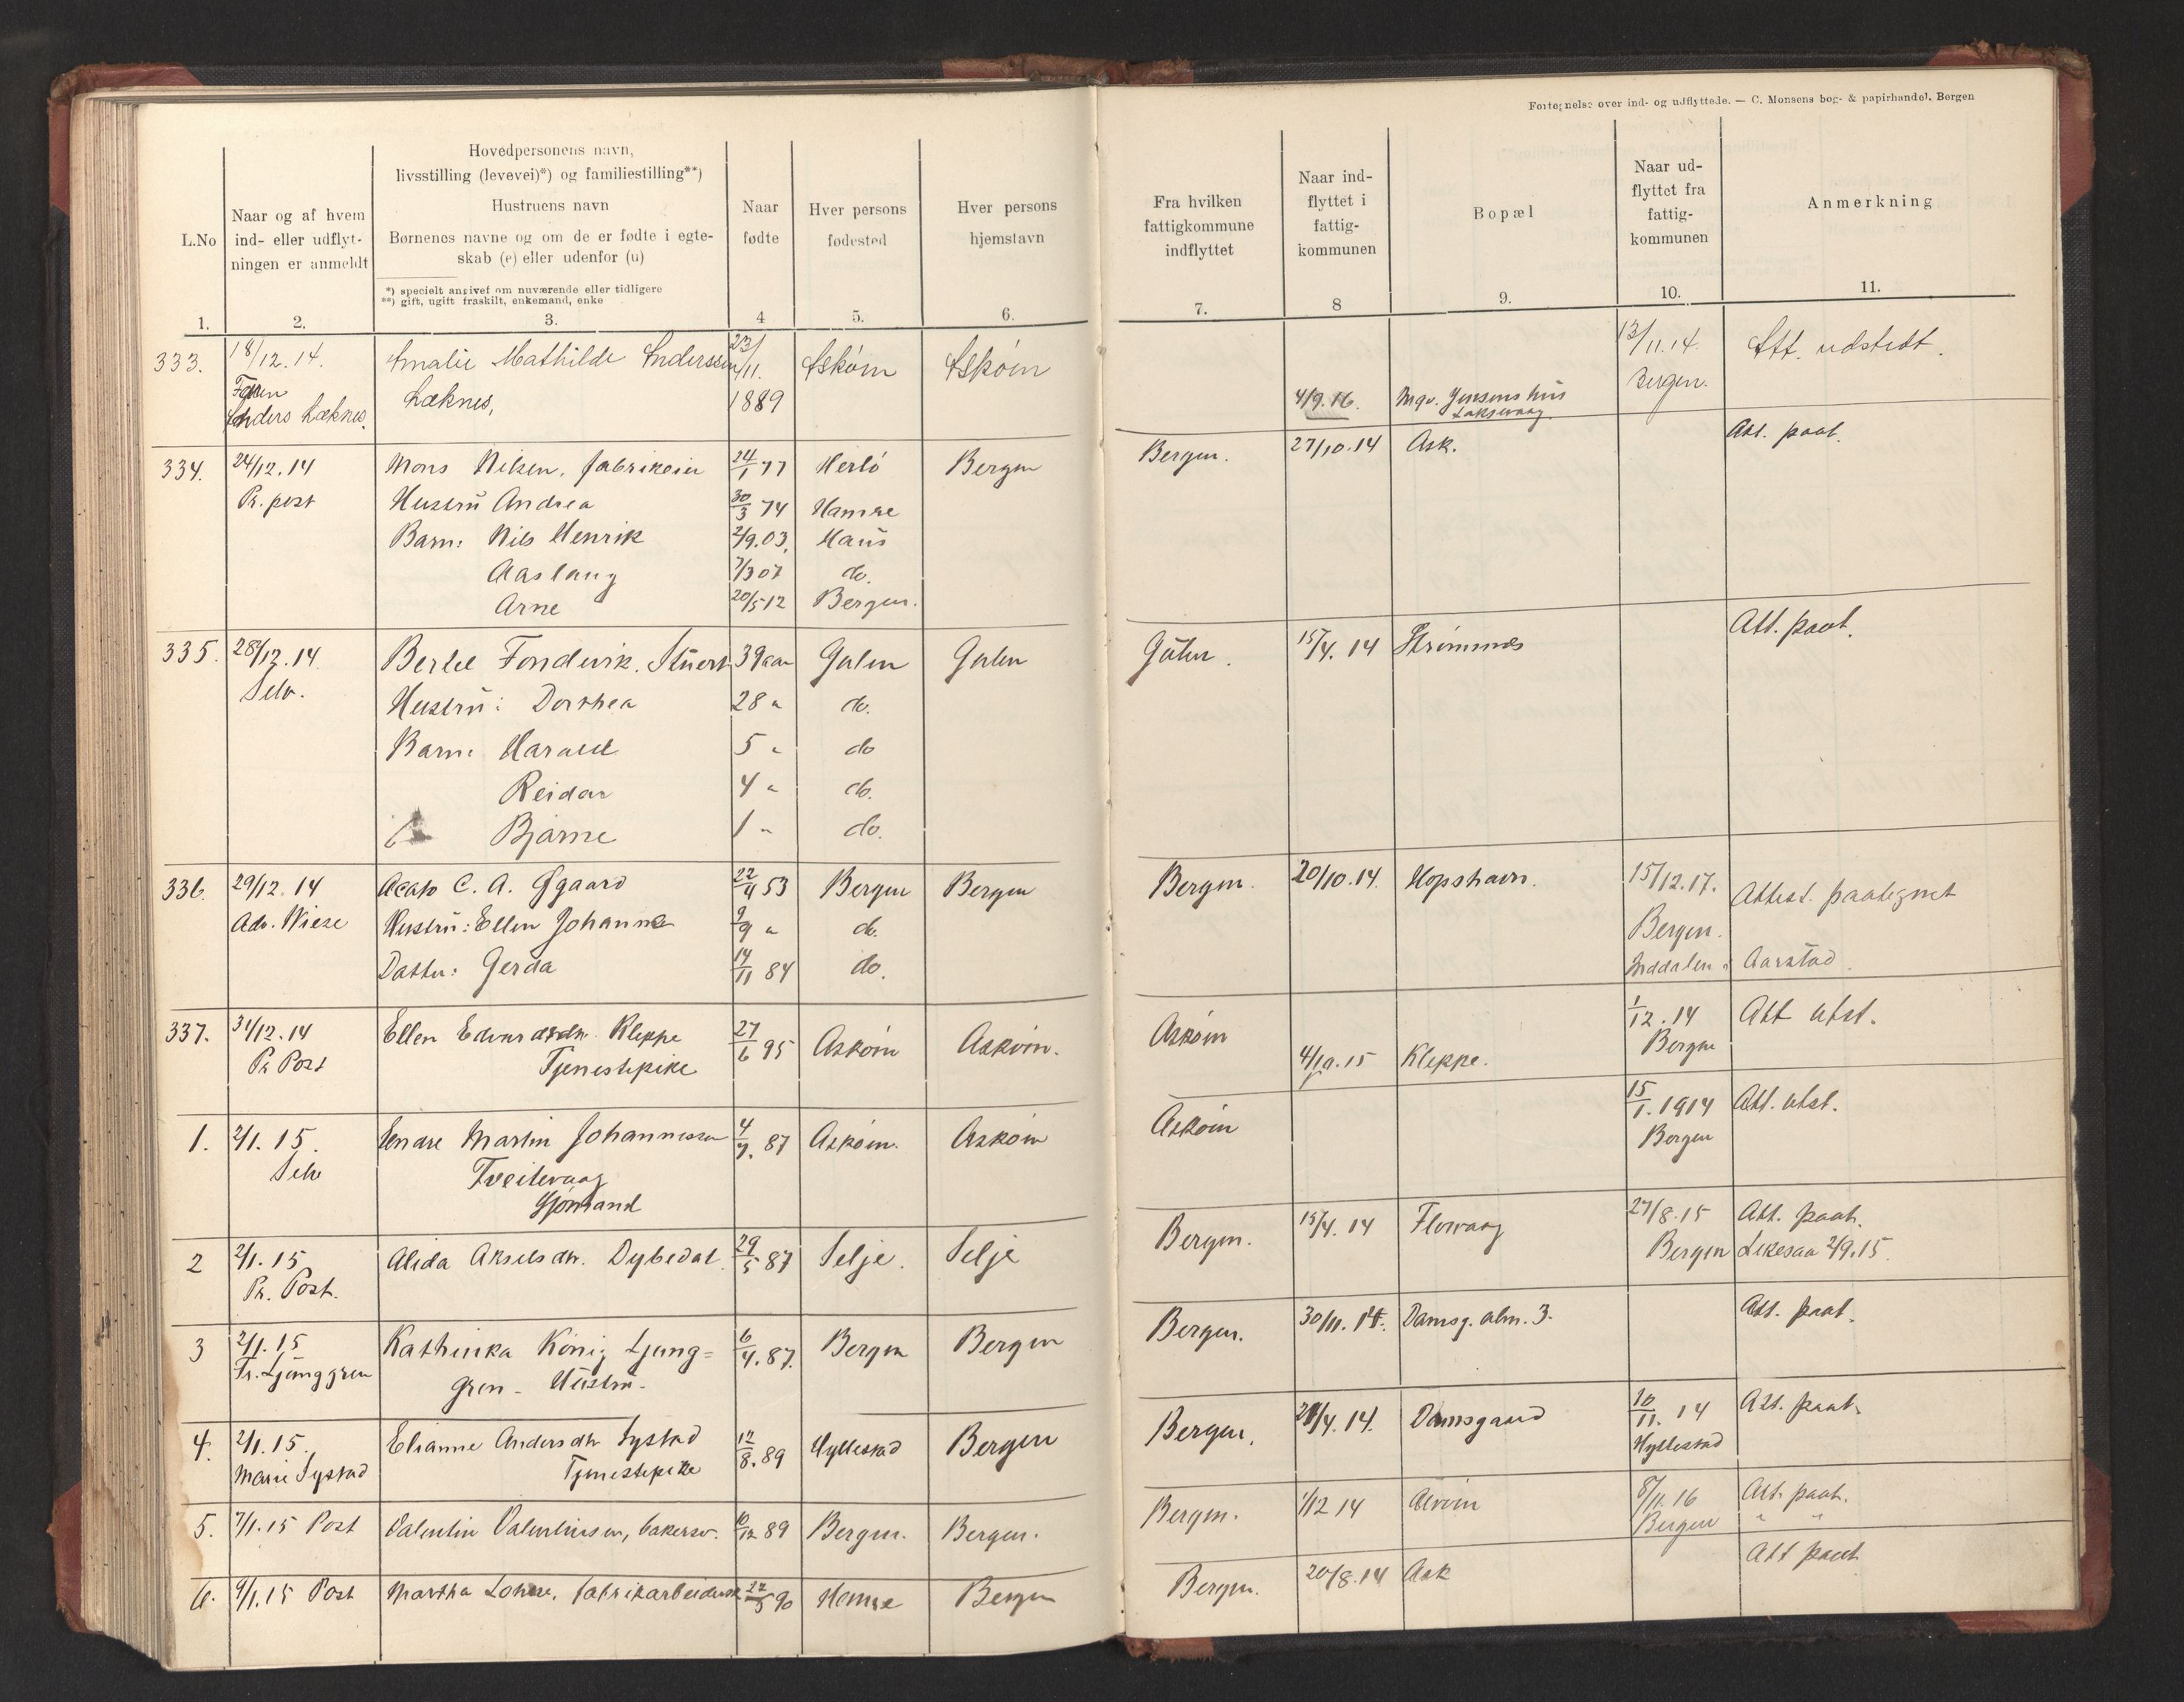 Fortegnelse over ind- og udflyttede. — C. Monsens bog- & papirhandel. Bergen
L.No
1.
Naar og af hvem
ind- eller udflyt-
ningen er anmeldt
2.
Hovedpersonens navn,
livsstilling (levevei)*) og familiestilling**)
Hustruens navn
Børnenes navne og om de er fødte i egte-
skab (e) eller udenfor (u)
*) specielt angivet om nuværende eller tidligere
**) gift, ugift fraskilt, enkemand, enke
3.
Naar
fødte
4
Hver persons
fødested
5.
Hver persons
hjemstavn
6.
Fra hvilken
fattigkommune
indflyttet
7.
Naar ind-
flyttet i
fattig-
kommunen
8
Bopæl
9.
Naar ud-
flyttet fra
fattig-
kommunen
10.
Anmerkning
11.
333. 18/12.14. Amalie Mathilde Anderssen 23/11. Askøin Askøin 13/11.14. Att. udstedt.
Faren Læknes, 1889 4/9.16. Jensens hus Bergen.
Anders Læknes. Laksevaag
334. 24/12.14 Mons Nilsen, fabrikeier 24/1 77 Herlö Bergen Bergen. 27/10.14 Ask. Att. paat.
Pr. post Hustru Andrea 30/3 74 Hamre
Barn: Nils Henrik 2/9.03. Haus
Aaslaug 7/3 07 do.
Arne 20/5 12 Bergen.
335. 28/12.14. Bertel Fondevik. 39 aar Gulen Gulen Gulen. 15/4.14 Strømsnes Att. paat.
Selv. Hustru: Dorthea 28 " do.
Barn: Harald 5 " do
Reidar 4 " do.
Bjarne 1 " do.
336. 29/12.14 Acato C. A. Ggaard 22/4 53 Bergen Bergen Bergen. 20/10.14. Hopshavn. 15/12.17. Attest. paategnet
Adv. Wiese Hustru: Ellen Johanne 9/9 " do. Bergen.
Datter: Gerda 14/11 84 do. Inddalen i Aarstad.
337. 31/12.14 Ellen Edvardsdtr. Kleppe 27/6 95 Askøin Askøin. Askøin 4/10.15 Kleppe. 1/12.14 Att utst.
Pr Post Tjenestepike Bergen
1. 2/1.15. Endre Martin Johannessen 4/9.87 Askøin. Askøin Askøin 15/1.1914 Att. utst.
Selv Tveitevaag Bergen
Sjömand
2 2/1.15 Alida Akselsdtr. Dybedal. 29/5 87 Selje. Selje Bergen. 15/4.14 Florvaag 27/8.15 Att. paat.
Pr. Post. Bergen Lekesaa 2/9.15.
3 2/1.15 Kathinka König Ljung= 6/4.87. Bergen Bergen Bergen. 30/11.14. Damsg. alm. 3. Att. paat.
Fr. Ljunggren gren - Hustru -
4. 2/1.15. Elianne Andersdtr Systad 12/8.89 Hyllestad Bergen Bergen. 21/4.14. Damsgaard 10/11.14 Att. paat.
Marie Systad Tjenestepike Hyllestad
5. 7/1.15 Post Valentin Valentinsen, bakersv. 10/12 89 Bergen. Bergen. Bergen. 1/12 14 Alvøin 8/11.16 Att. paat.
Bergen " "
6. 9/1.15 Post Martha Lonse, fabrikarbeiderske 22/5 90 Hamre Bergen Bergen. 20/8.14 Ask Att paat